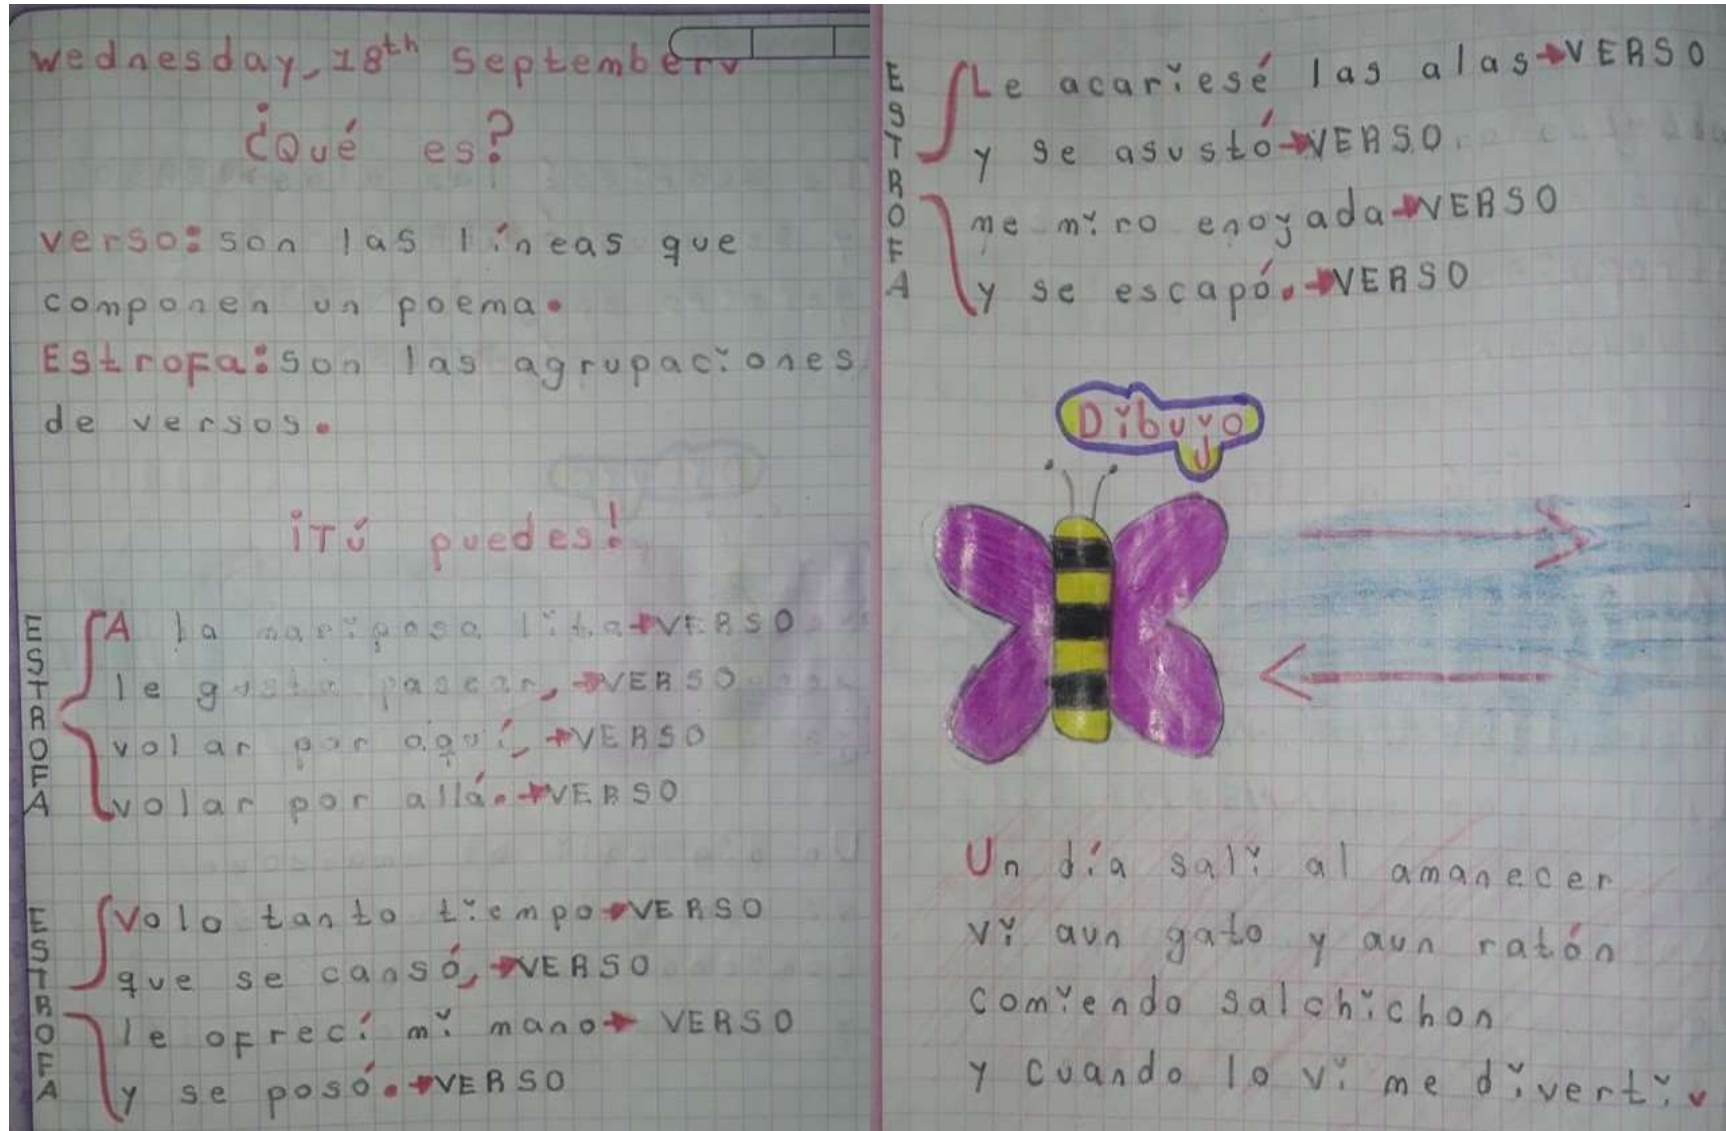 Wednesday, 18th September
¿Qué es?
verso: son las líneas que
componen un poema.
Estrofa: son las agrupaciones
de versos.
¡Tú puedes!
ESTROFA
A la mariposa lita→VERSO
le gusta pasear,→VERSO
volar por aquí,→VERSO
volar por allá.→VERSO
ESTROFA
Volo tanto tiempo→VERSO
que se cansó,→VERSO
le ofrecí mi mano→VERSO
y se posó.→VERSO
ESTROFA
Le acariesé las alas→VERSO
y se asustó→VERSO
me miro enojada→VERSO
y se escapó.→VERSO
Dibujo
Un día sali al amanecer
vi aun gato y aun ratón
comiendo salchichon
y cuando lo vi me diverti